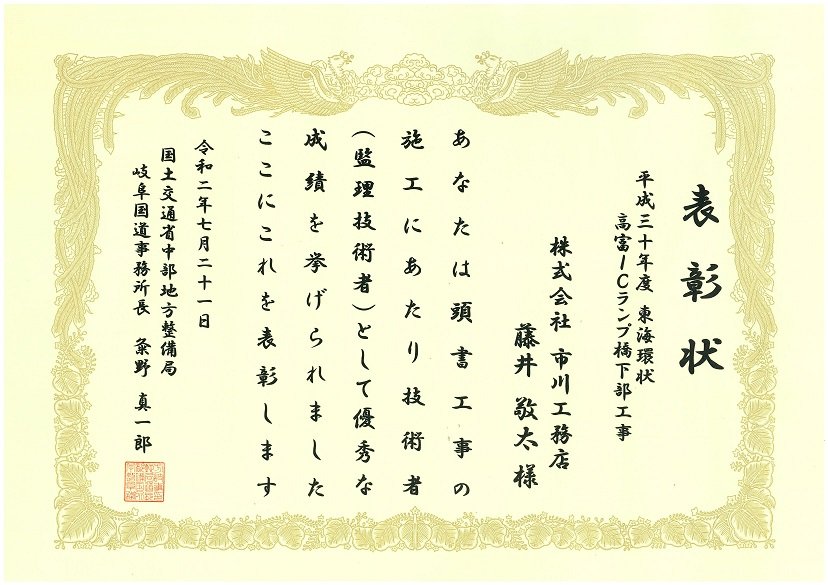 表彰状
平成三十年度 東海環状
高富ICランプ橋下部工事
株式会社 市川工務店
藤井 敬太 様
あなたは頭書工事の
施工にあたり技術者
(監理技術者)として優秀な
成績を挙げられました
ここにこれを表彰します
令和二年七月二十一日
国土交通省中部地方整備局
岐阜国道事務所長 粂野 真一郎